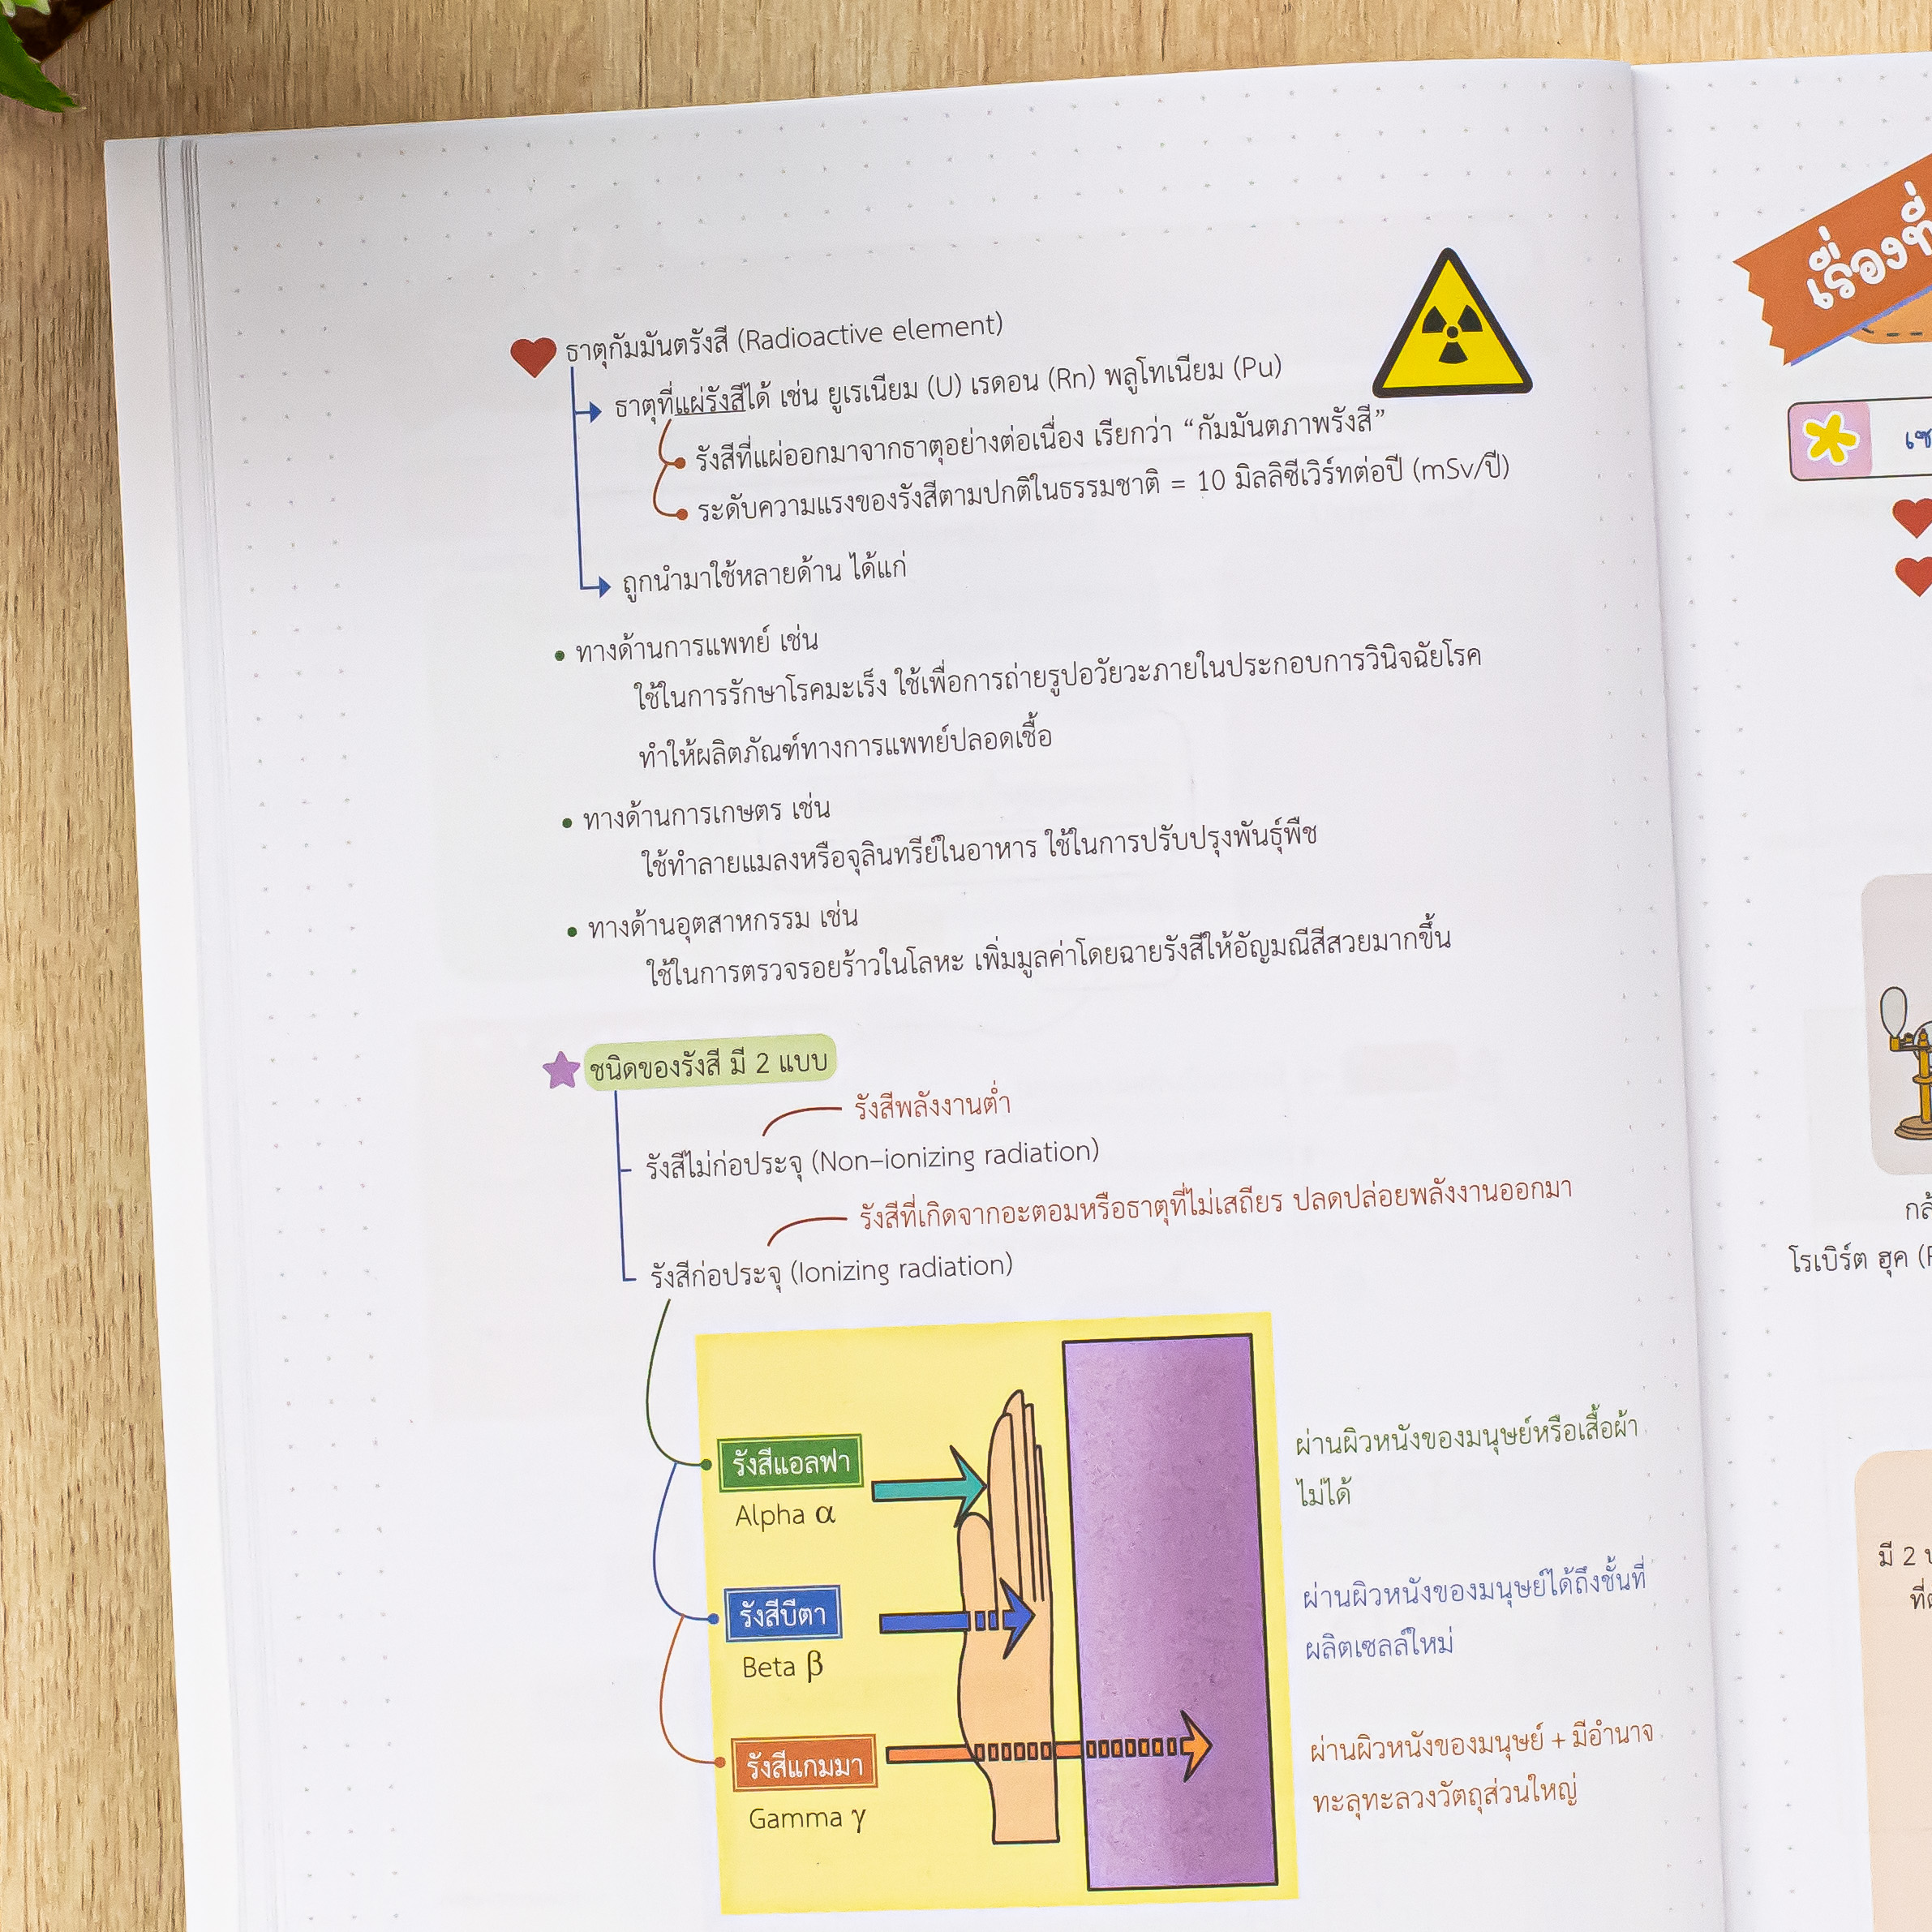 ธาตุกัมมันตรังสี (Radioactive element)
ธาตุที่แผ่รังสีได้ เช่น ยูเรเนียม (U) เรดอน (Rn) พลูโทเนียม (Pu)
รังสีที่แผ่ออกมาจากธาตุอย่างต่อเนื่อง เรียกว่า “กัมมันตภาพรังสี”
ระดับความแรงของรังสีตามปกติในธรรมชาติ = 10 มิลลิซีเวิร์ทต่อปี (mSv/ปี)
ถูกนำมาใช้หลายด้าน ได้แก่
• ทางด้านการแพทย์ เช่น
ใช้ในการรักษาโรคมะเร็ง ใช้เพื่อการถ่ายรูปอวัยวะภายในประกอบการวินิจฉัยโรค
ทำให้ผลิตภัณฑ์ทางการแพทย์ปลอดเชื้อ
• ทางด้านการเกษตร เช่น
ใช้ทำลายแมลงหรือจุลินทรีย์ในอาหาร ใช้ในการปรับปรุงพันธุ์พืช
• ทางด้านอุตสาหกรรม เช่น
ใช้ในการตรวจรอยร้าวในโลหะ เพิ่มมูลค่าโดยฉายรังสีให้อัญมณีสีสวยมากขึ้น
ชนิดของรังสี มี 2 แบบ
รังสีพลังงานต่ำ
รังสีไม่ก่อประจุ (Non–ionizing radiation)
รังสีที่เกิดจากอะตอมหรือธาตุที่ไม่เสถียร ปลดปล่อยพลังงานออกมา
รังสีก่อประจุ (Ionizing radiation)
รังสีแอลฟา
Alpha α
ผ่านผิวหนังของมนุษย์หรือเสื้อผ้า
ไม่ได้
รังสีบีตา
Beta β
ผ่านผิวหนังของมนุษย์ได้ถึงชั้นที่
ผลิตเซลล์ใหม่
รังสีแกมมา
Gamma γ
ผ่านผิวหนังของมนุษย์ + มีอำนาจ
ทะลุทะลวงวัตถุส่วนใหญ่
เรื่องที่
โรเบิร์ต ฮุค
มี 2